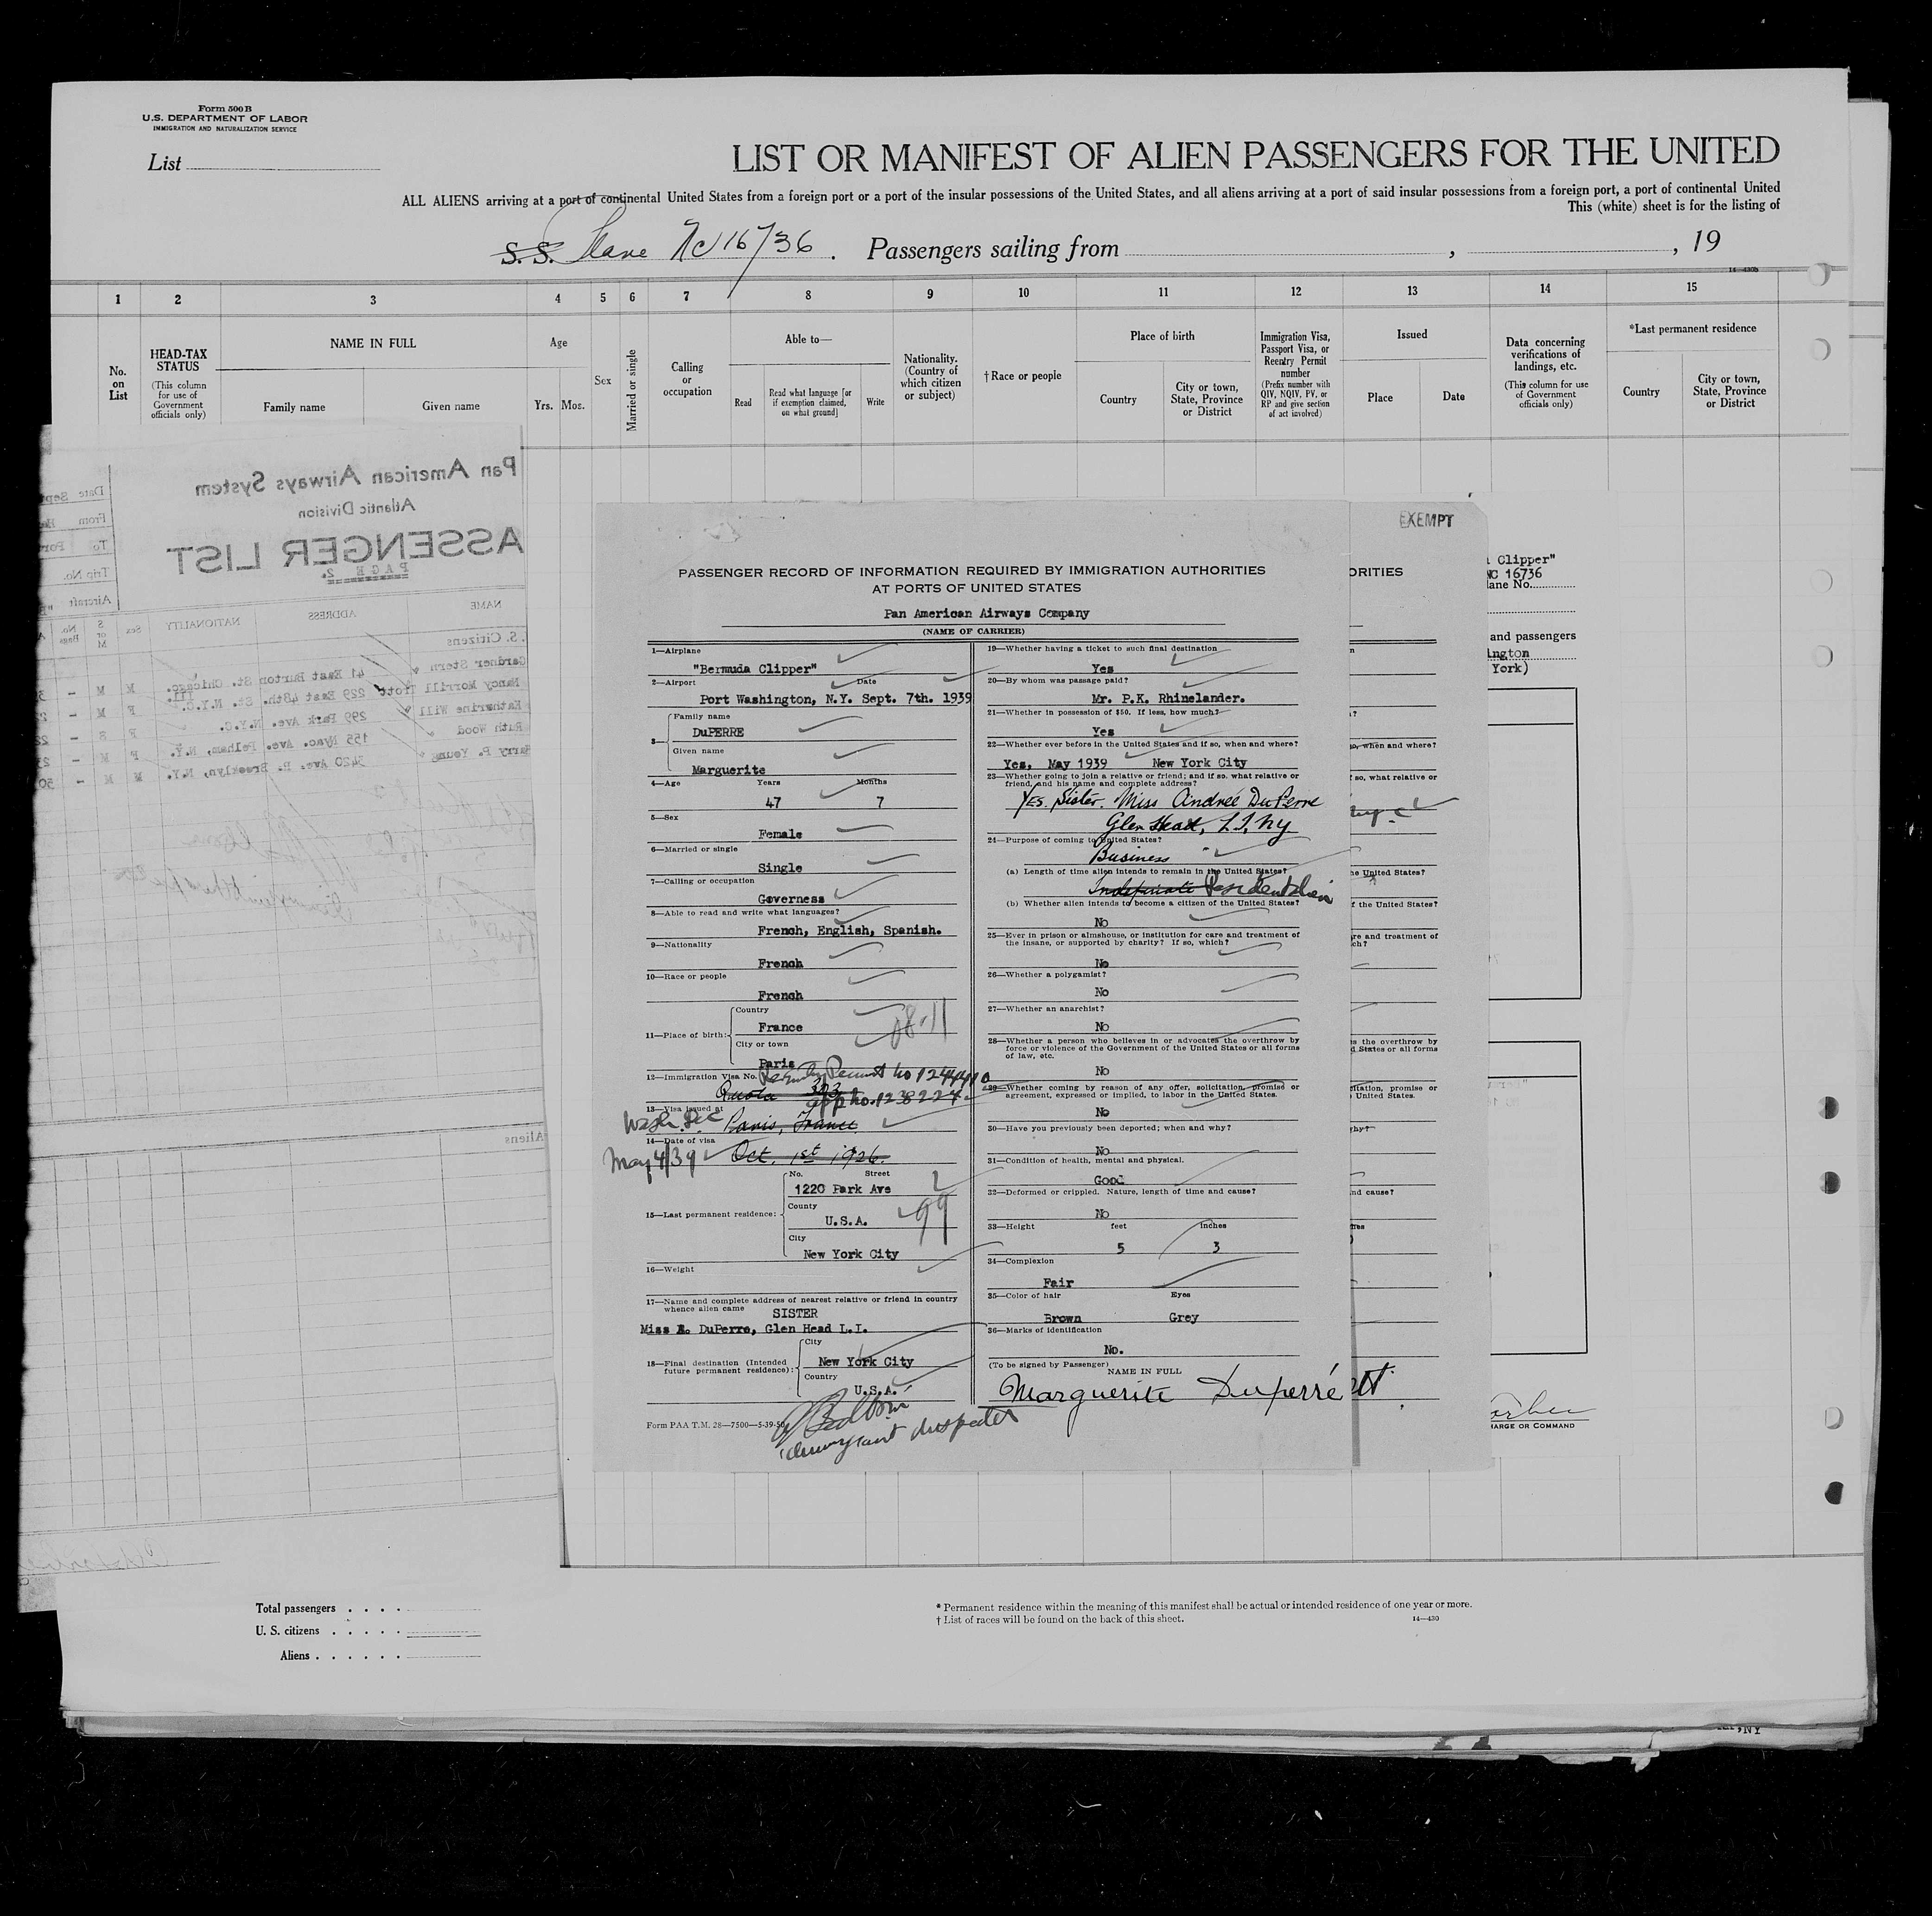 Form 500 B
U.S. DEPARTMENT OF LABOR
IMMIGRATION AND NATURALIZATION SERVICE
List
LIST OR MANIFEST OF ALIEN PASSENGERS FOR THE UNITED
ALL ALIENS arriving at a port of continental United States from a foreign port or a port of the insular possessions of the United States, and all aliens arriving at a port of said insular possessions from a foreign port, a port of continental United
This (white) sheet is for the listing of
S.S. Plane NC 16736. Passengers sailing from , , 19
14—430b
1 2 3 4 5 6 7 8 9 10 11 12 13 14 15
No. on List
HEAD-TAX STATUS
(This column for use of Government officials only)
NAME IN FULL
Family name
Given name
Age
Yrs. Mos.
Sex
Married or single
Calling or occupation
Able to—
Read
Read what language [or if exemption claimed, on what ground]
Write
Nationality. (Country of which citizen or subject)
† Race or people
Place of birth
Country
City or town, State, Province or District
Immigration Visa, Passport Visa, or Reentry Permit number
(Prefix number with QIV, NQIV, PV, or RP and give section of act involved)
Issued
Place
Date
Data concerning verifications of landings, etc.
(This column for use of Government officials only)
*Last permanent residence
Country
City or town, State, Province or District
Pan American Airways System
Atlantic Division
ASSENGER LIST
PAGE 2.
Date Sep
From
To Por
Trip No.
Aircraft
NAME ADDRESS NATIONALITY Sex S or M No. Bags
.S. Citizens
Gardner Stern 41 East Burton St. Chicago, Ill. M M -
Nancy Morrill Trott 229 East 48th. St. N.Y.C. F M -
Katharine Will 299 Park Ave. N.Y.C. F S -
Ruth Wood 155 Nyac. Ave. Pelham, N.Y. F M -
Harry P. Young 3420 Ave. P. Brooklyn, N.Y. M M -
Aliens
EXEMPT
PASSENGER RECORD OF INFORMATION REQUIRED BY IMMIGRATION AUTHORITIES
AT PORTS OF UNITED STATES
Pan American Airways Company
(NAME OF CARRIER)
1—Airplane
"Bermuda Clipper"
2—Airport Date
Port Washington, N.Y. Sept. 7th. 1939
3—
Family name
DuPERRE
Given name
Marguerite
4—Age Years Months
47 7
5—Sex
Female
6—Married or single
Single
7—Calling or occupation
Governess
8—Able to read and write what languages?
French, English, Spanish.
9—Nationality
French
10—Race or people
French
11—Place of birth:
Country
France
City or town
Paris
12—Immigration Visa No. Re Entry Permit No 1244410
Quota 323 app no. 1238224
13—Visa issued at
Wash. D.C. Paris, France
14—Date of visa
May 4/39 Oct. 1st 1926.
15—Last permanent residence:
No. Street
1220 Park Ave
County
U.S.A.
99
City
New York City
16—Weight
17—Name and complete address of nearest relative or friend in country
whence alien came
SISTER
Miss A. DuPerre, Glen Head L.I.
18—Final destination (Intended future permanent residence):
City
New York City
Country
U.S.A.
Form PAA T.M. 28—7500—5-39-50
Immigrant Inspector
19—Whether having a ticket to such final destination
Yes
20—By whom was passage paid?
Mr. P.K. Rhinelander.
21—Whether in possession of $50. If less, how much?
Yes
22—Whether ever before in the United States and if so, when and where?
Yes, May 1939 New York City
23—Whether going to join a relative or friend; and if so. what relative or
friend, and his name and complete address?
Yes. Sister. Miss Andreé DuPerre
Glen Head, L.I, Ny
24—Purpose of coming to United States?
Business
(a) Length of time alien intends to remain in the United States?
Indefinate Resident alien
(b) Whether alien intends to become a citizen of the United States?
No
25—Ever in prison or almshouse, or institution for care and treatment of
the insane, or supported by charity? If so, which?
No
26—Whether a polygamist?
No
27—Whether an anarchist?
No
28—Whether a person who believes in or advocates the overthrow by
force or violence of the Government of the United States or all forms
of law, etc.
No
29—Whether coming by reason of any offer, solicitation, promise or
agreement, expressed or implied, to labor in the United States.
No
30—Have you previously been deported; when and why?
No
31—Condition of health, mental and physical.
Good
32—Deformed or crippled. Nature, length of time and cause?
No
33—Height feet inches
5 3
34—Complexion
Fair
35—Color of hair Eyes
Brown Grey
36—Marks of identification
No.
(To be signed by Passenger)
NAME IN FULL
Marguerite Duperré
ORITIES
so, when and where?
f so, what relative or
he United States?
f the United States?
re and treatment of
ch?
s the overthrow by
d States or all forms
itation, promise or
United States.
hy?
nd cause?
Clipper"
NC 16736
lane No.
and passengers
ington
York)
HARGE OR COMMAND
Total passengers
U. S. citizens
Aliens
* Permanent residence within the meaning of this manifest shall be actual or intended residence of one year or more.
† List of races will be found on the back of this sheet.
14—430